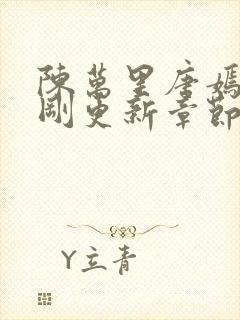 陳萬里唐嫣
剛更新章節
Y立青